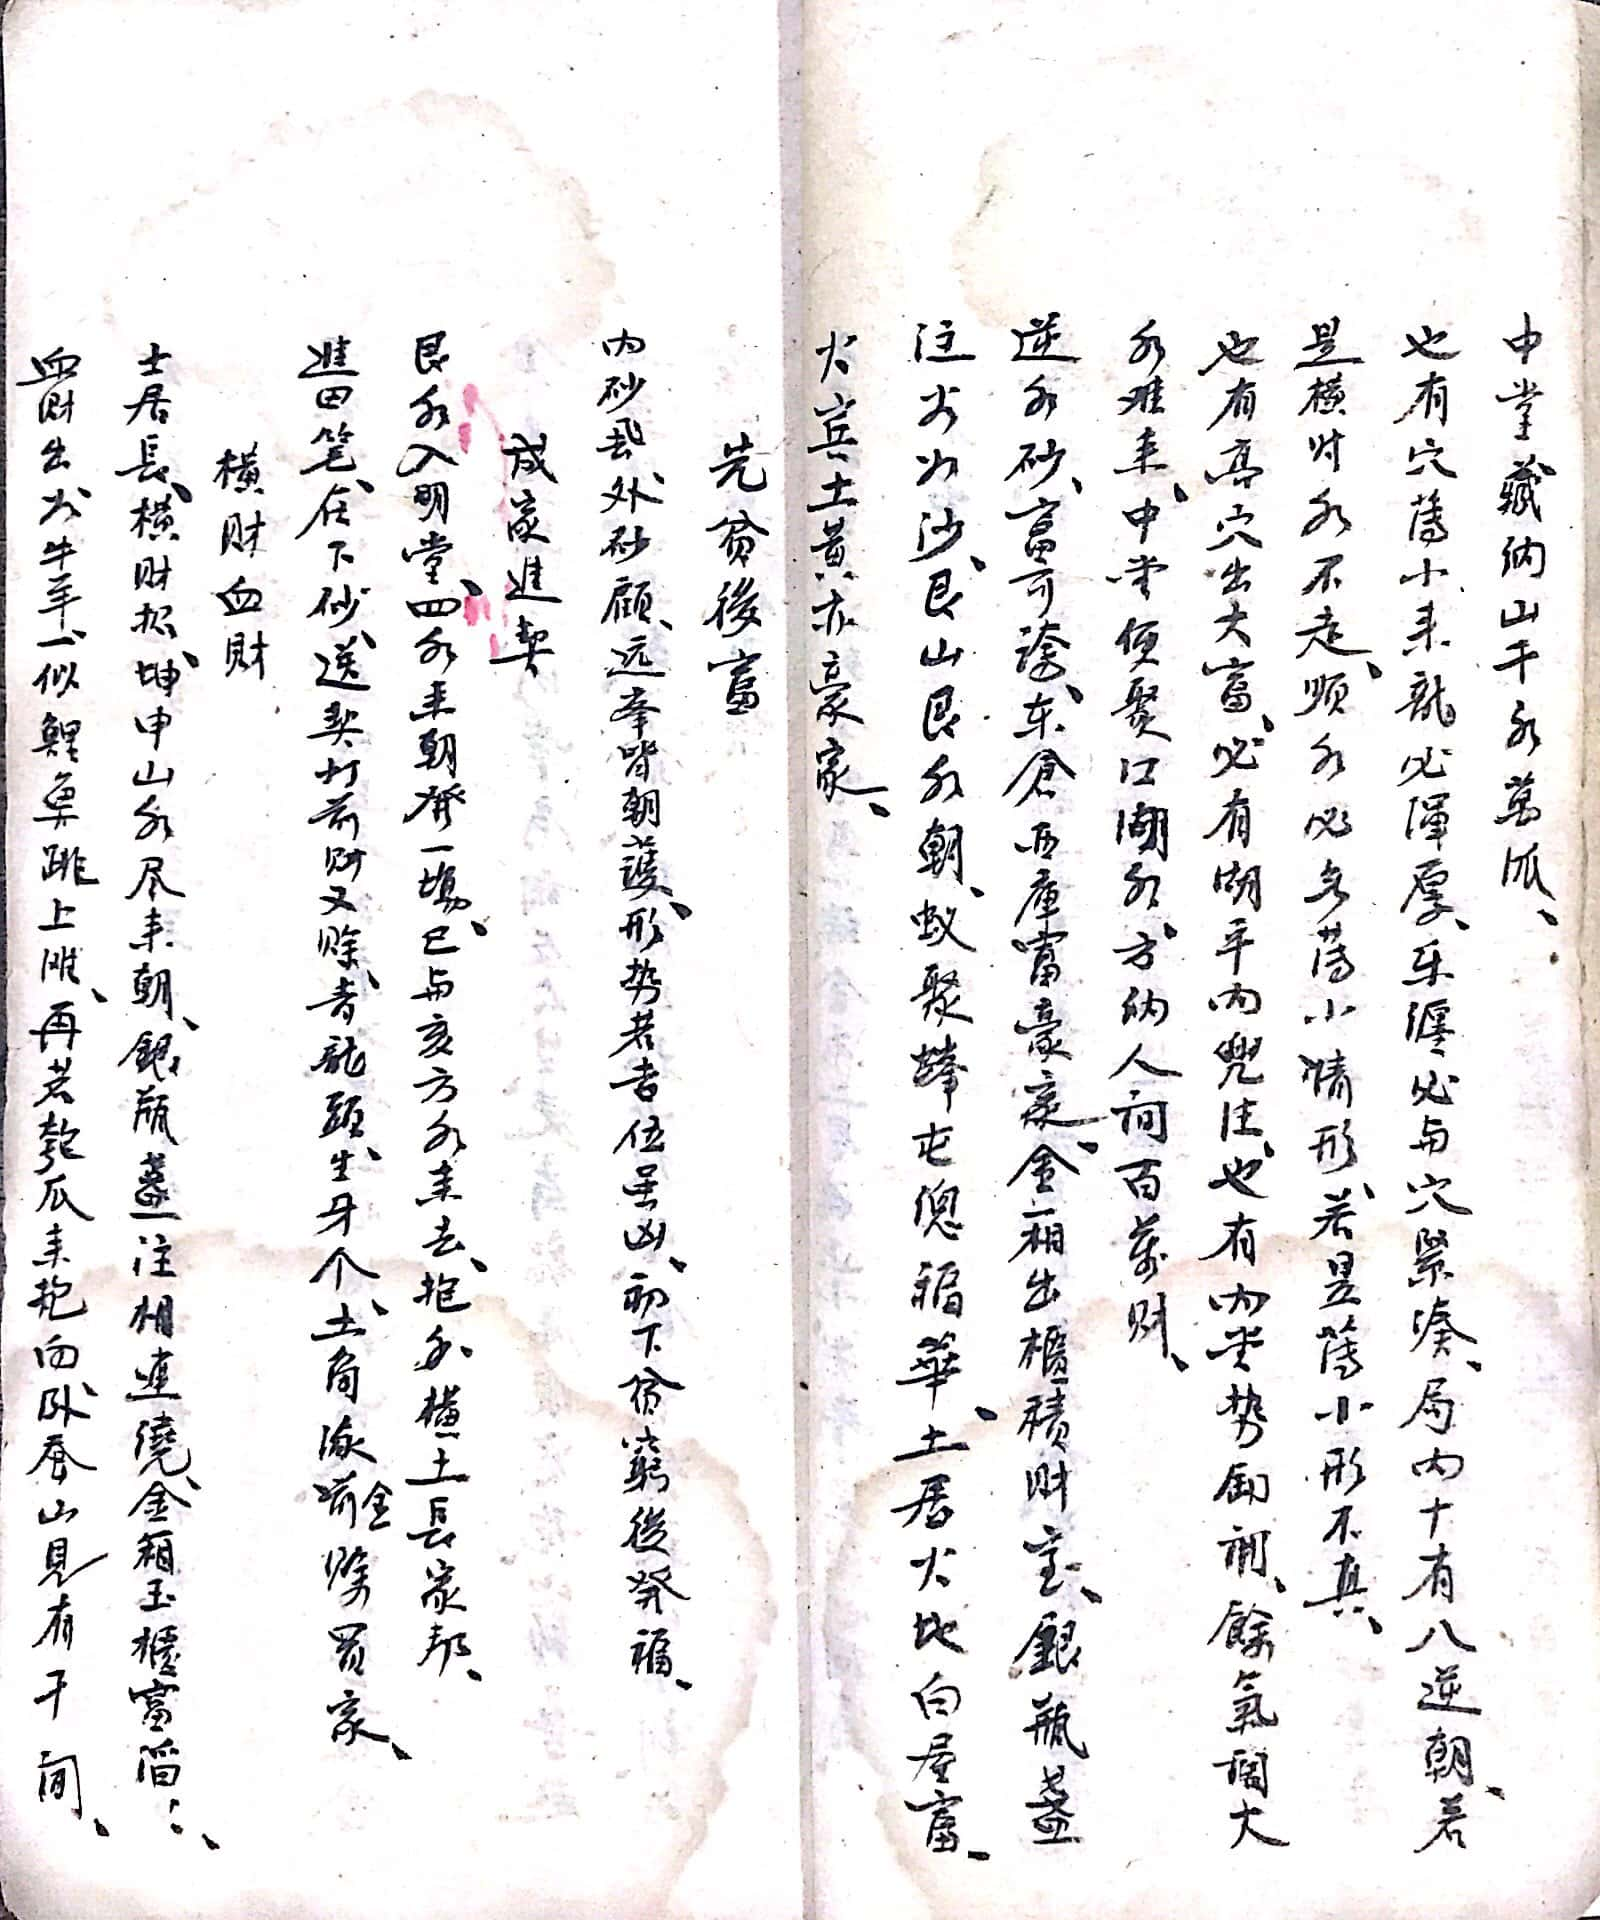 中堂藏納山千水萬派、
也有穴薄小来龍必渾厚、乐纏必与穴緊凑、局内十有八逆朝、若
是横时水不走、顺水必多薄小情形、若是薄小形不真、
也有高穴出大富、必有湖平内兜注、也有内堂势闹、餘氣濶大
水难来、中堂便聚口湖水、方纳人间百萬财、
逆水砂、富可誇、东仓西庫富豪家、金箱出櫃積财宝、銀瓶盏
注出水沙、艮山艮水朝、蚁聚蜂屯總福華、土居火地白屋富、
火宾土黄亦豪家、
先貧後富
内砂飛外砂顧、远峯皆朝護、形势若吉伍虽凶、初下貧窮後発福、
成家進契
艮水入明堂、四水来朝発一塲、巳与亥方水来去、抱水横土長家邦、
進田笔、在下砂、送契灯前财又賒、青龍頭、生牙个、土角流前金賒買家、
横财血财
士居長、横财招、坤申山水尽来朝、銀瓶盏注相連繞、金箱玉櫃富滔〻、
血财出水牛羊、一似鯉魚跳上滩、再若匏瓜来抱向、卧蚕山見有千间、